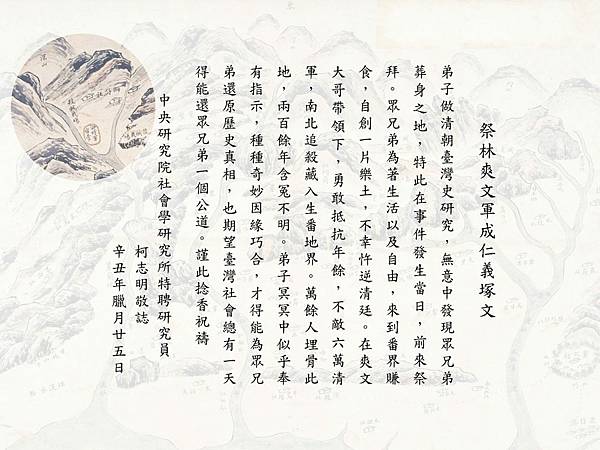 祭林爽文軍成仁義塚文
弟子做清朝臺灣史研究，無意中發現眾兄弟
葬身之地，特此在事件發生當日，前來祭
拜。眾兄弟為著生活以及自由，來到番界賺
食，自創一片樂土，不幸忤逆清廷。在爽文
大哥帶領下，勇敢抵抗年餘，不敵六萬清
軍，南北追殺藏入生番地界。萬餘人埋骨此
地，兩百餘年含冤不明。弟子冥冥中似乎奉
有指示，種種奇妙因緣巧合，才得能為眾兄
弟還原歷史真相，也期望臺灣社會總有一天
得能還眾兄弟一個公道。謹此捻香祝禱
中央研究院社會學研究所特聘研究員
柯志明敬誌
辛丑年臘月廿五日